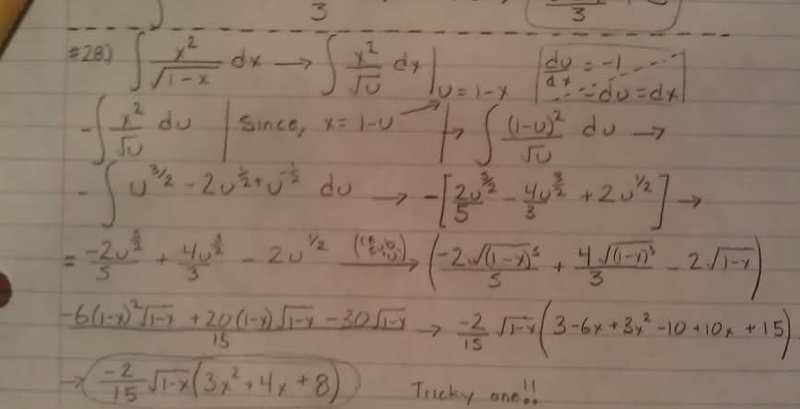 3
3
#28) ∫ x²/√(1-x) dx → ∫ x²/√u dx | u = 1-x | du/dx = -1 -du = dx |
-∫ x²/√u du | Since, x = 1-u | → ∫ (1-u)²/√u du →
-∫ u^(3/2) - 2u^(1/2) + u^(-1/2) du → -[2u^(5/2)/5 - 4u^(3/2)/3 + 2u^(1/2)] →
= -2u^(5/2)/5 + 4u^(3/2)/3 - 2u^(1/2) → (-2√(1-x)^5/5 + 4√(1-x)^3/3 - 2√(1-x))
(-6(1-x)²√(1-x) + 20(1-x)√(1-x) - 30√(1-x))/15 → -2/15 √(1-x) (3 - 6x + 3x² - 10 + 10x + 15)
→ -2/15 √(1-x) (3x² + 4x + 8) Tricky one!!